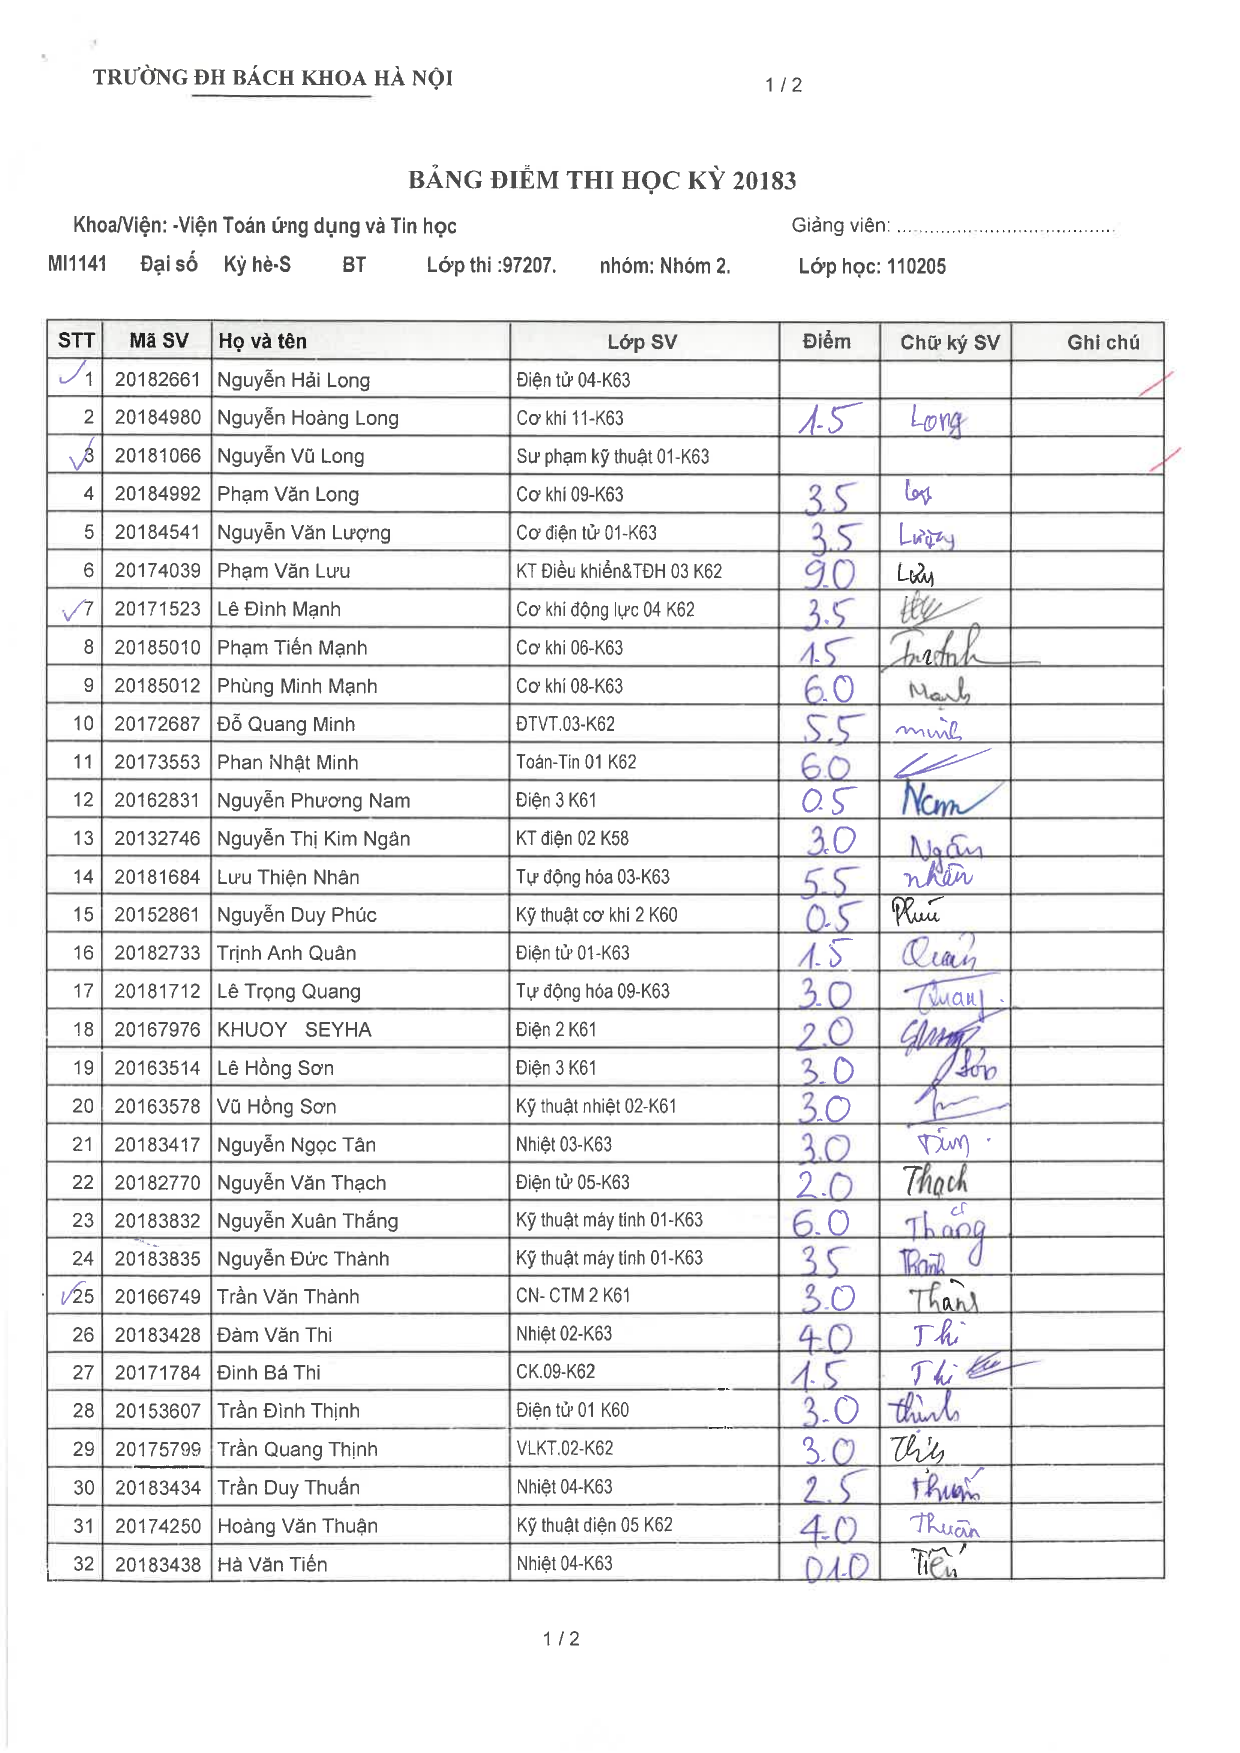 TRƯỜNG ĐH BÁCH KHOA HÀ NỘI
1 / 2
BẢNG ĐIỂM THI HỌC KỲ 20183
Khoa/Viện: -Viện Toán ứng dụng và Tin học Giảng viên: ........................................
MI1141 Đại số Kỳ hè-S BT Lớp thi :97207. nhóm: Nhóm 2. Lớp học: 110205
STT Mã SV Họ và tên Lớp SV Điểm Chữ ký SV Ghi chú
1 20182661 Nguyễn Hải Long Điện tử 04-K63
2 20184980 Nguyễn Hoàng Long Cơ khí 11-K63 1.5 Long
3 20181066 Nguyễn Vũ Long Sư phạm kỹ thuật 01-K63
4 20184992 Phạm Văn Long Cơ khí 09-K63 3.5
5 20184541 Nguyễn Văn Lượng Cơ điện tử 01-K63 3.5 Lượng
6 20174039 Phạm Văn Lưu KT Điều khiển&TĐH 03 K62 9.0
7 20171523 Lê Đình Mạnh Cơ khí động lực 04 K62 3.5
8 20185010 Phạm Tiến Mạnh Cơ khí 06-K63 1.5
9 20185012 Phùng Minh Mạnh Cơ khí 08-K63 6.0 Mạnh
10 20172687 Đỗ Quang Minh ĐTVT.03-K62 5.5 minh
11 20173553 Phan Nhật Minh Toán-Tin 01 K62 6.0
12 20162831 Nguyễn Phương Nam Điện 3 K61 0.5 Nam
13 20132746 Nguyễn Thị Kim Ngân KT điện 02 K58 3.0 Ngân
14 20181684 Lưu Thiện Nhân Tự động hóa 03-K63 5.5 nhân
15 20152861 Nguyễn Duy Phúc Kỹ thuật cơ khí 2 K60 0.5 Phúc
16 20182733 Trịnh Anh Quân Điện tử 01-K63 1.5 Quân
17 20181712 Lê Trọng Quang Tự động hóa 09-K63 3.0 Quang
18 20167976 KHUOY SEYHA Điện 2 K61 2.0
19 20163514 Lê Hồng Sơn Điện 3 K61 3.0 Sơn
20 20163578 Vũ Hồng Sơn Kỹ thuật nhiệt 02-K61 3.0
21 20183417 Nguyễn Ngọc Tân Nhiệt 03-K63 3.0 Tân
22 20182770 Nguyễn Văn Thạch Điện tử 05-K63 2.0 Thạch
23 20183832 Nguyễn Xuân Thắng Kỹ thuật máy tính 01-K63 6.0 Thắng
24 20183835 Nguyễn Đức Thành Kỹ thuật máy tính 01-K63 3.5 Thành
25 20166749 Trần Văn Thành CN- CTM 2 K61 3.0 Thành
26 20183428 Đàm Văn Thi Nhiệt 02-K63 4.0 Thi
27 20171784 Đinh Bá Thi CK.09-K62 1.5 Thi
28 20153607 Trần Đình Thịnh Điện tử 01 K60 3.0 thịnh
29 20175799 Trần Quang Thịnh VLKT.02-K62 3.0
30 20183434 Trần Duy Thuấn Nhiệt 04-K63 2.5 Thuấn
31 20174250 Hoàng Văn Thuận Kỹ thuật điện 05 K62 4.0 Thuận
32 20183438 Hà Văn Tiến Nhiệt 04-K63 01.0 Tiến
1 / 2